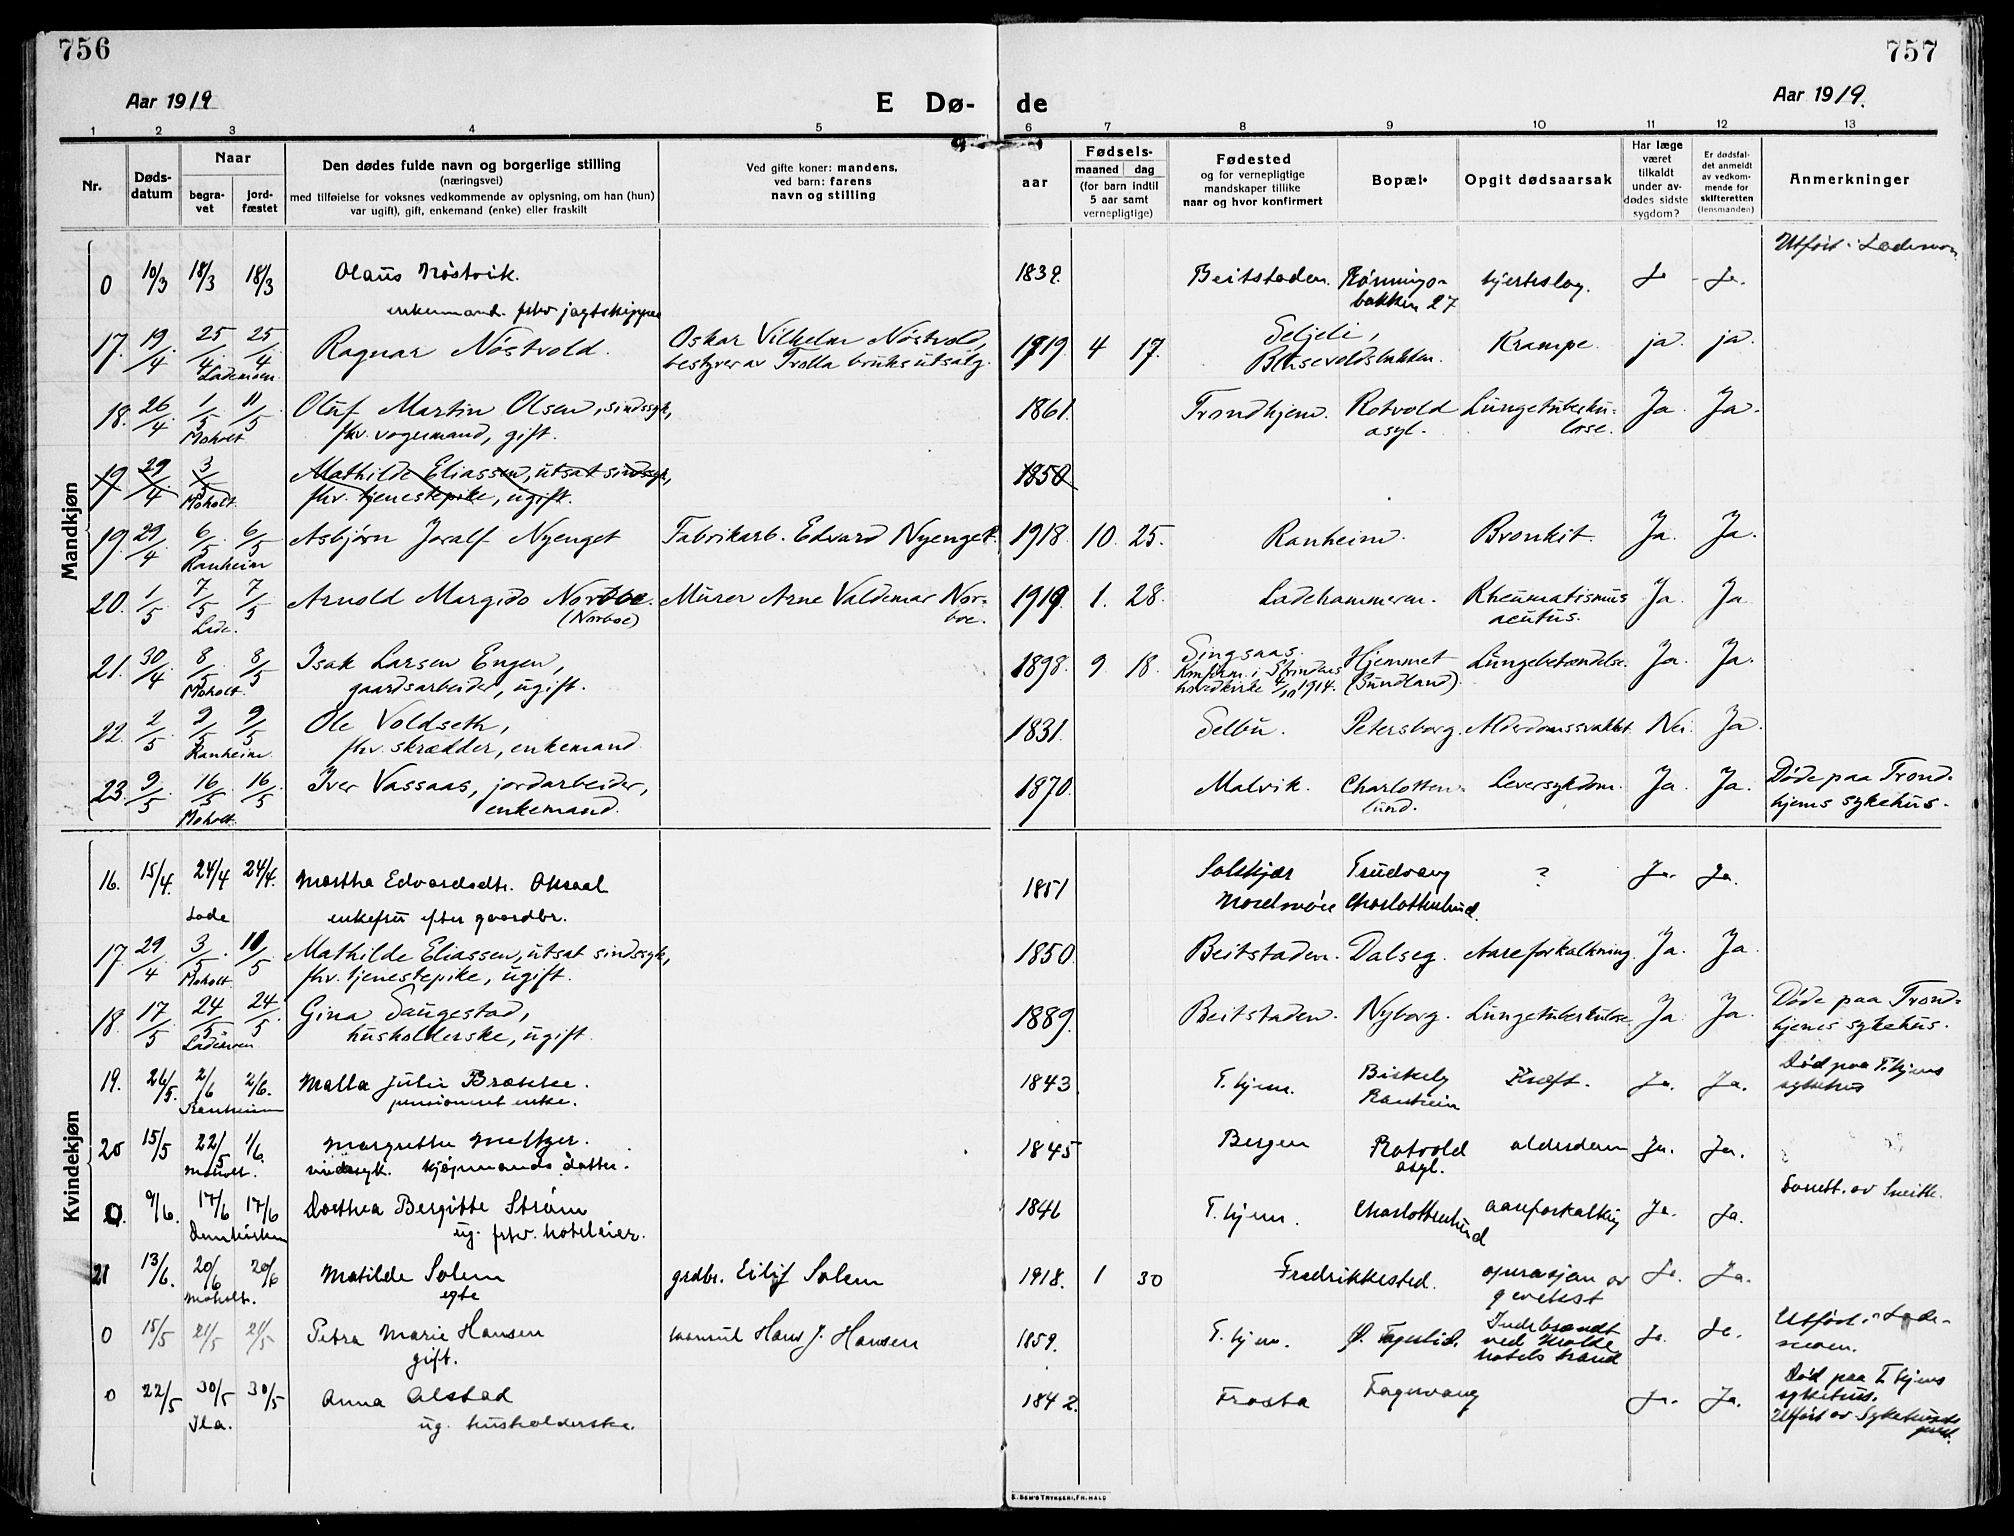 756
757
Aar 1919
E Dø- de
Aar 1919.
1 2 3 4 5 6 7 8 9 10 11 12 13
Nr.
Døds-
datum
Naar
begra-
vet
jord-
fæstet
Den dødes fulde navn og borgerlige stilling
(næringsvei)
med tilføielse for voksnes vedkommende av oplysning, om han (hun)
var ugift), gift, enkemand (enke) eller fraskilt
Ved gifte koner: mandens,
ved barn: farens
navn og stilling
aar
Fødsels-
maaned dag
(for barn indtil
5 aar samt
vernepligtige)
Fødested
og for vernepligtige
mandskaper tillike
naar og hvor konfirmert
Bopæl.
Opgit dødsaarsak
Har læge
været
tilkaldt
under av-
dødes sidste
sygdom?
Er dødsfal-
det anmeldt
av vedkom-
mende for
skifteretten
(lensmanden)
Anmerkninger
Mandkjøn
0 10/3 18/3 18/3 Olaus Nøstvik. 1839. Beitstaden. Rønnings- hjerteslag. Ja Ja. Utført i Lademoen
enkemand. fhv jagtskipper bakken 27
17. 19/4. 25/4. 25/4 Ragnar Nøstvold. Oskar Vilhelm Nøstvold, 1919. 4 17. Seljeli, Krampe. ja. ja.
Lademoen. bestyrer av Trolla bruks utsalg.
18. 26/4. 1/5 11/5 Oluf Martin Olsen, sindssyk, 1861. Trondhjem. Rotvold Lungetuberku- Ja. Ja.
Moholt fhv. vognmand, gift. asyl. lose.
19 29/4 3/5 Mathilde Eliassen, utsat sindssyk, 1850
Moholt fhv. tjenestepike, ugift.
19. 29/4. 6/5 6/5 Asbjørn Joralf Nyenget Fabrikarb. Edvard Nyenget. 1918. 10. 25. Ranheim. Bronkit. Ja. Ja.
Ranheim
20. 1/5 7/5 7/5 Arnold Margido Norboe. Murer Arne Valdemar Nor- 1919. 1. 28. Ladehammeren. Rheumatismus Ja. Ja
Lade. (Norboe) boe. acutus.
21. 30/4. 8/5 8/5 Isak Larsen Engen, 1898. 9. 18. Singsaas. Hjemmet Lungebetændelse. Ja. Ja.
Moholt. gaardsarbeider, ugift. Konfirm. i Strindens (Sundland).
hovedkirke 4/10 1914.
22. 2/5 9/5 9/5 Ole Voldseth, 1831. Selbu. Petersborg. Alderdomssvakhet. Nei. Ja.
Ranheim. fhv. skrædder, enkemand.
23. 9/5 16/5 16/5 Iver Vassaas, jordarbeider, 1870. Malvik. Charlotten- Leversykdom. Ja. Ja. Døde paa Trond-
Moholt. enkemand. lund. hjems sykehus.
Kvindekjøn
16. 15/4. 24/4 24/4. Martha Edvardsdtr. Oksaal 1851 Solskjær Trudvang ? Ja. Ja.
Lade enkefru efter gaardbr. Nordmøre Charlottenlund.
17. 29/4 3/5. 11/5 Mathilde Eliassen, utsat sindssyk, 1850. Beitstaden. Dalseg. Aareforkalkning. Ja. Ja.
Moholt fhv. tjenestepike, ugift.
18. 17/5 24/5 24/5 Gina Saugestad, 1889. Beitstaden. Nyborg. Lungetuberkulose. Ja. Ja. Døde paa Trond-
Lademoen husholderske, ugift. hjems sykehus.
19. 26/5. 2/6 2/6. Malla Julie Brække. 1843. T.hjem. Biskely Kræft. Ja. Ja. Død paa T.hjems
Ranheim pensioneret enke. Ranheim sykehus
20 15/5 22/5 1/6. Margrethe Meltzer. 1845 Bergen Rotvold alderdom Ja. Ja.
Moholt. sindssyk. kjøpmands datter. asyl.
0. 9/6. 17/6 17/6 Dorthea Bergitte Strøm 1846 T.hjem. Charlottenlund aareforkalkng Ja. Ja.
Domkirken ug. fhv. hoteleier.
21 13/6. 20/6 20/6 Matilde Solem grdbr. Eilif Solem 1918. 1 30 Fredrikkested. operasjon av Ja. Ja.
Moholt. egte gevekst
0 15/5 21/5 21/5 Petra Marie Hansen Hans J. Hansen 1859. T.hjem. Ø. Fagerlid. Indebrændt Ja. Ja. Utført i Lade-
gift. ved Molde moen.
hotels brand
0 22/5 30/5 30/5 Anna Alstad 1842. Frosta Fagervang Ja. Ja. Død paa T.hjems
Ila. ug. husholderske. sykehus.
Utført av Sykehusets
prest.